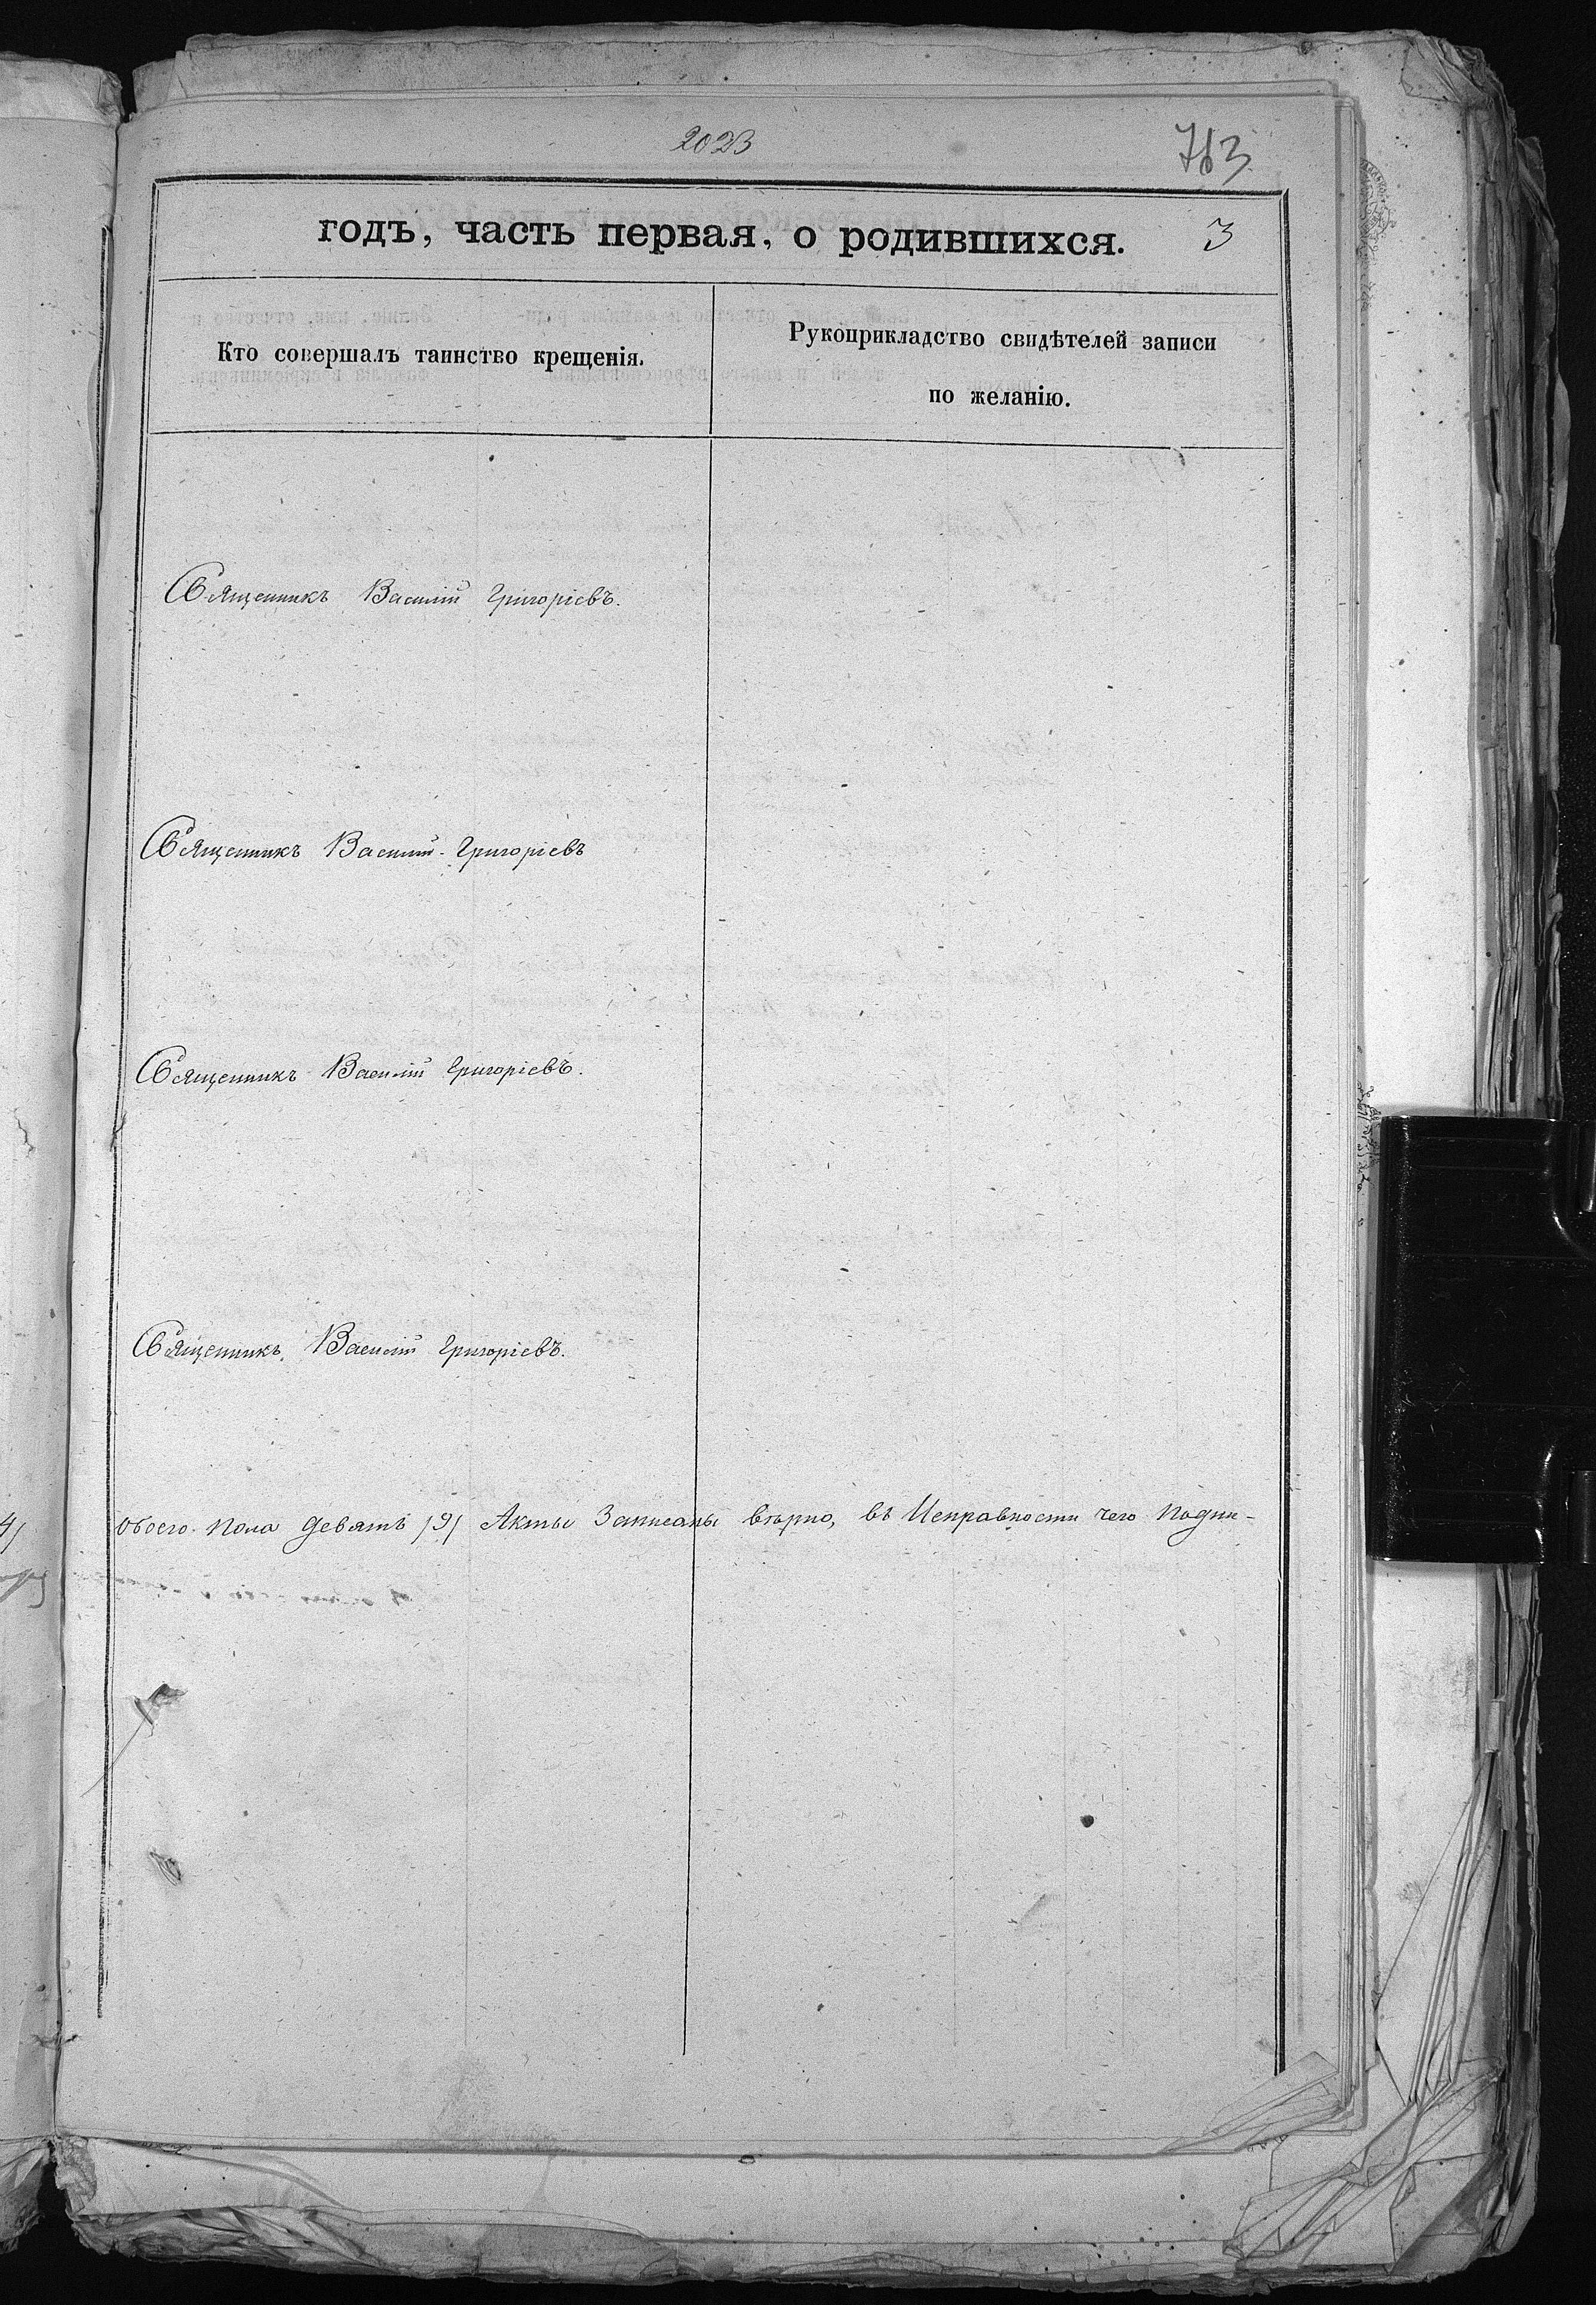 2023
763
годъ, часть первая, о родившихся. 3
Кто совершалъ таинство крещенія.
Рукоприкладство свидѣтелей записи
по желанію.
Священникъ Василій Григоріевъ.
Священникъ Василій Григоріевъ
Священникъ Василій Григоріевъ.
Священникъ Василій Григоріевъ.
обоего пола девять /9/ Акты Записаны вѣрно, въ Исправности чего подпи-